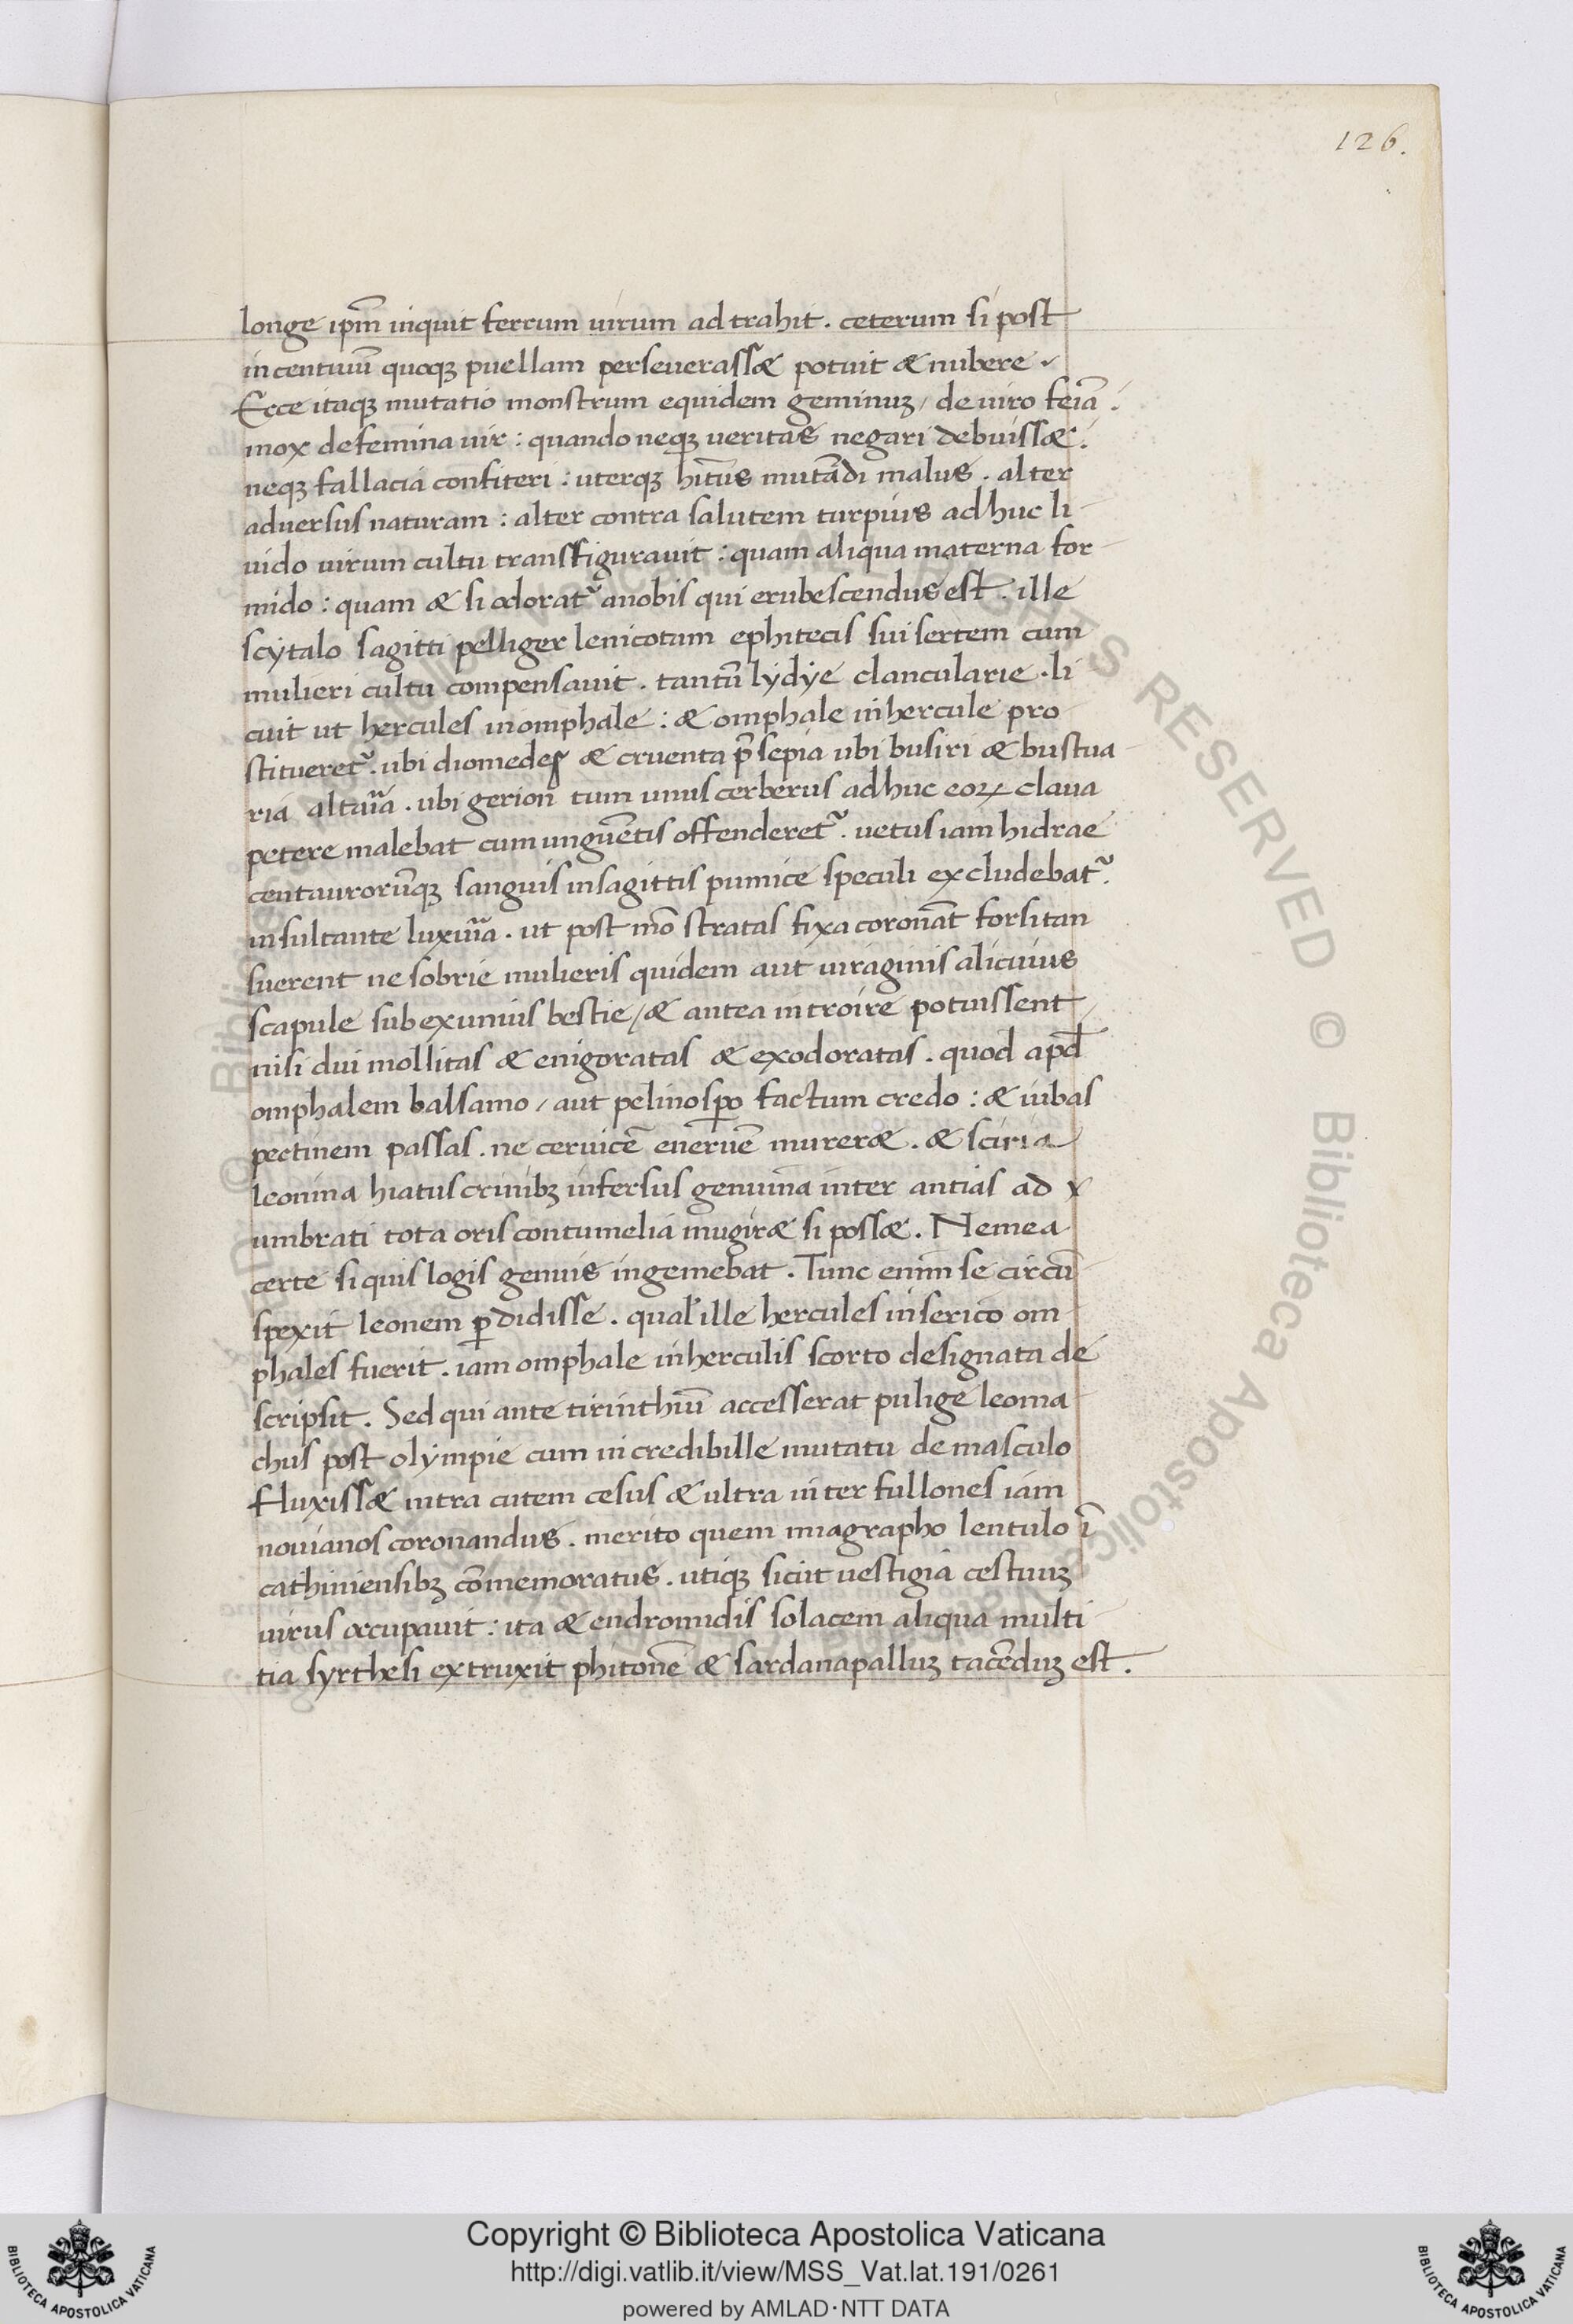 126.
longe ip̄m inquit ferrum uirum adtrahit. ceterum si post
incentiuū quoqꝫ puellam perseuerassæ potuit & nubere.
Ecce itaqꝫ mutatio monstrum equidem geminuꝫ / de uiro feīa.
mox defemina uir: quando neqꝫ ueritas negari debuissæ.
neqꝫ fallacia confiteri: uterqꝫ hītus mutādi malus. alter
aduersus naturam: alter contra salutem turpius adhuc li
uido uirum cultu transfigurauit: quam aliqua materna for
mido: quam & si adorat᷑ anobis qui erubescendus est. ille
scytalo sagitti pelliger lenicotum ephitecis sui sertem cum
mulieri cultu compensauit. tantū lydye clancularie. li
cuit ut hercules inomphale: & omphale inhercule pro
stitueret᷑. ubi diomedes & cruenta p̄sepia ubi busiri & bustua
ria altaria. ubi gerion tum unus cerberus adhuc eoꝝ claua
petere malebat cum unguētis offenderet᷑. uetus iam hidrae
centaurorūqꝫ sanguis insagittis pumice speculi excludebat᷑.
insultante luxuria. ut post mōstratas fixa coronāt forsitan
suerent ne sobrie mulieris quidem aut uiraginis alicuius
scapule sub exuniuis bestie / & antea introire potuissent
nisi dui mollitas & enigoratas & exodoratas. quod apd̄
omphalem balsamo / aut pelinosꝑo factum credo: & iubas
pectinem passas. ne ceruicē eneruē mureræ. & sciria
leonina hiatus crinibꝫ infersus genuina inter antias ad
umbrati tota oris contumelia mugiræ si possæ. Nemea
certe si quis logis genuis ingemebat. Tunc enim se circū
spexit leonem ꝑdidisse. qual' ille hercules inserico om
phales fuerit. iam omphale inherculis scorto designata de
scripsit. Sed qui ante tirinthiū accesserat pulige leoma
chus post olympie cum incredibille mutatu de masculo
fluxissæ intra cutem cesus & ultra inter fullones iam
nouianos coronandus. merito quem miagrapho lentulo ī
cathiniensibꝫ cōmemoratus. utiqꝫ sicut uestigia cestuuꝫ
uirus occupauit: ita & endromidis solacem aliqua multi
tia syrthesi extruxit phitonē & sardanapalluꝫ tacēduꝫ est.
Copyright © Biblioteca Apostolica Vaticana
http://digi.vatlib.it/view/MSS_Vat.lat.191/0261
powered by AMLAD·NTT DATA